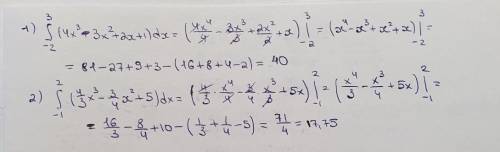 1) ∫₋₂³ (4x³-3x²+2x+1)dx = (4x⁴/4 - 3x³/3 + 2x²/2 + x)|₋₂³ = (x⁴-x³+x²+x)|₋₂³ =
= 81-27+9+3-(16+8+4-2) = 40
2) ∫₋₁² (4/3 x³ - 3/4 x² + 5)dx = (4/3 x⁴/4 - 3/4 x³/3 + 5x)|₋₁² = (x⁴/3 - x³/4 + 5x)|₋₁² =
= 16/3 - 8/4 + 10 - (1/3 + 1/4 - 5) = 71/4 = 17,75